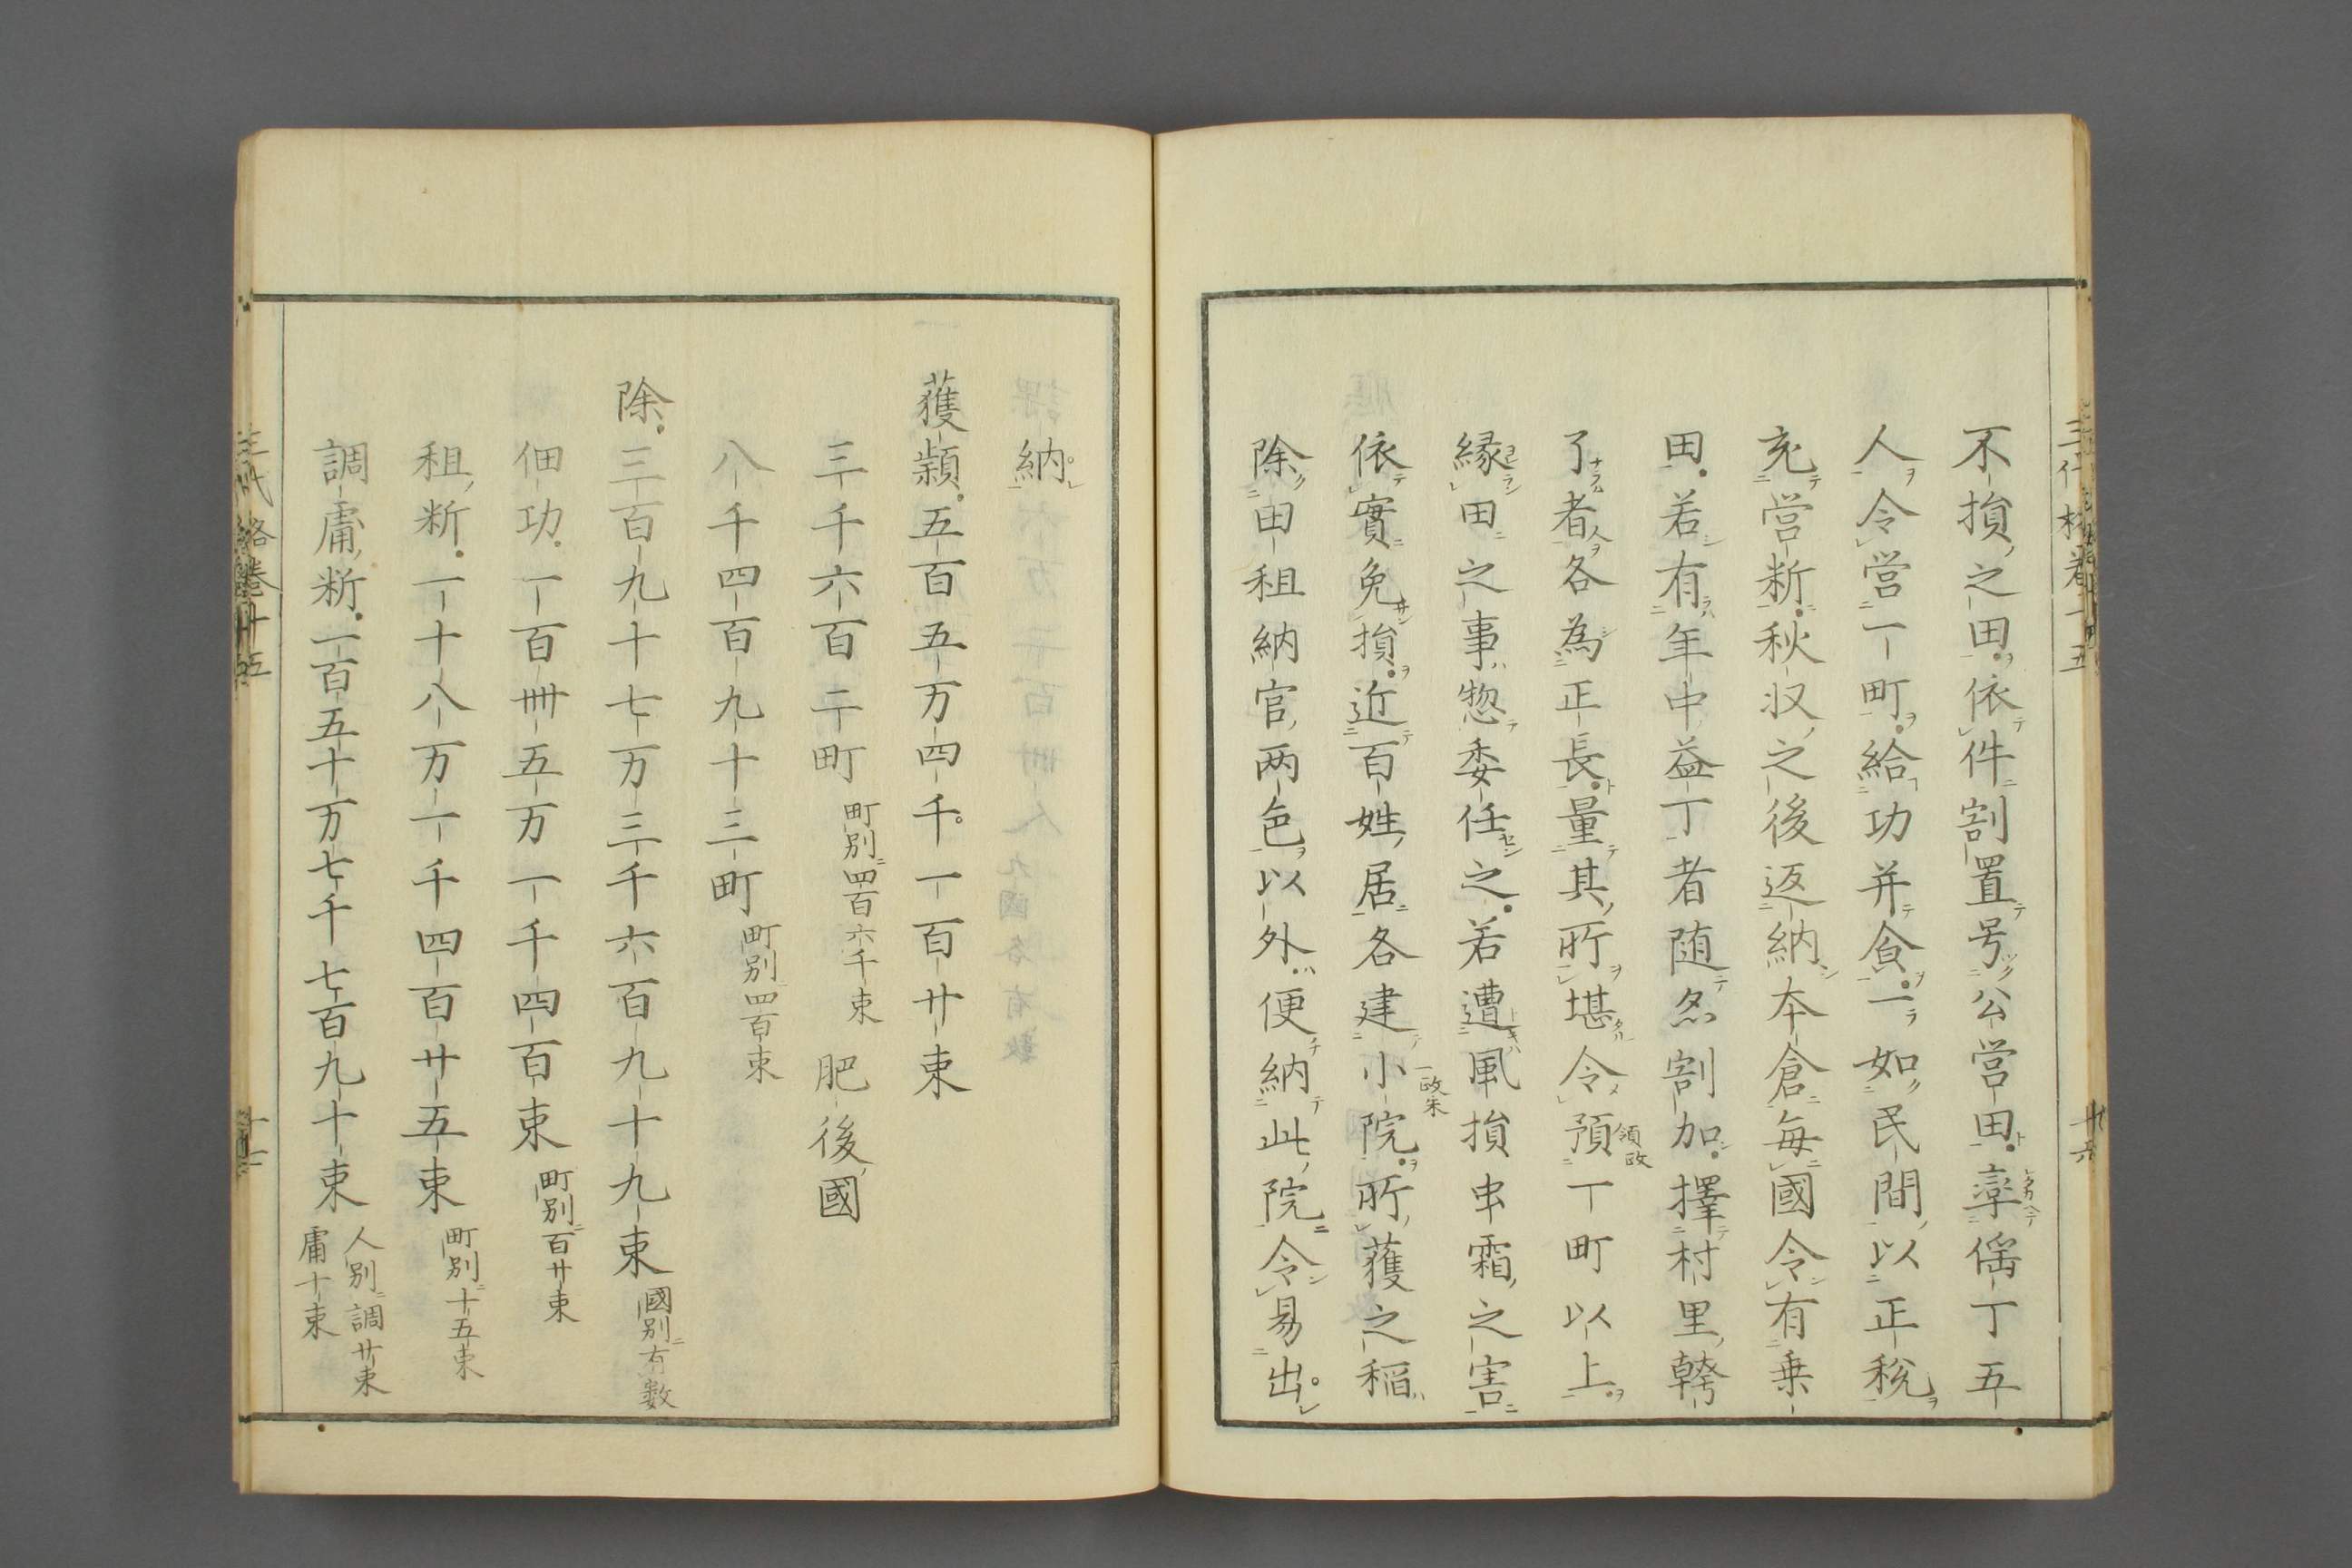 不損之田依件割置号公営田率徭丁五
人令営一町給功并食一如民間以正税
充営料秋収之後返納本倉毎國令有乗
田若有年中益丁者随亦割加擇村里幹
了者各為正長量其所堪令預一町以上
縁田之事惣委任之若遭風損虫霜之害
依實免損近百姓居各建小院所獲之稲
除田租納官両色以外便納此院令易出
納
獲穎五百五万四千一百廿束
三千六百二町町別四百六千束肥後國
八千四百九十三町町別四百束
除三百九十七万三千六百九十九束國別有数
佃功一百卌五万一千四百束町別百廿束
租料一十八万一千四百廿五束町別十五束
調庸料一百五十万七千七百九十束人別調廿束庸十束